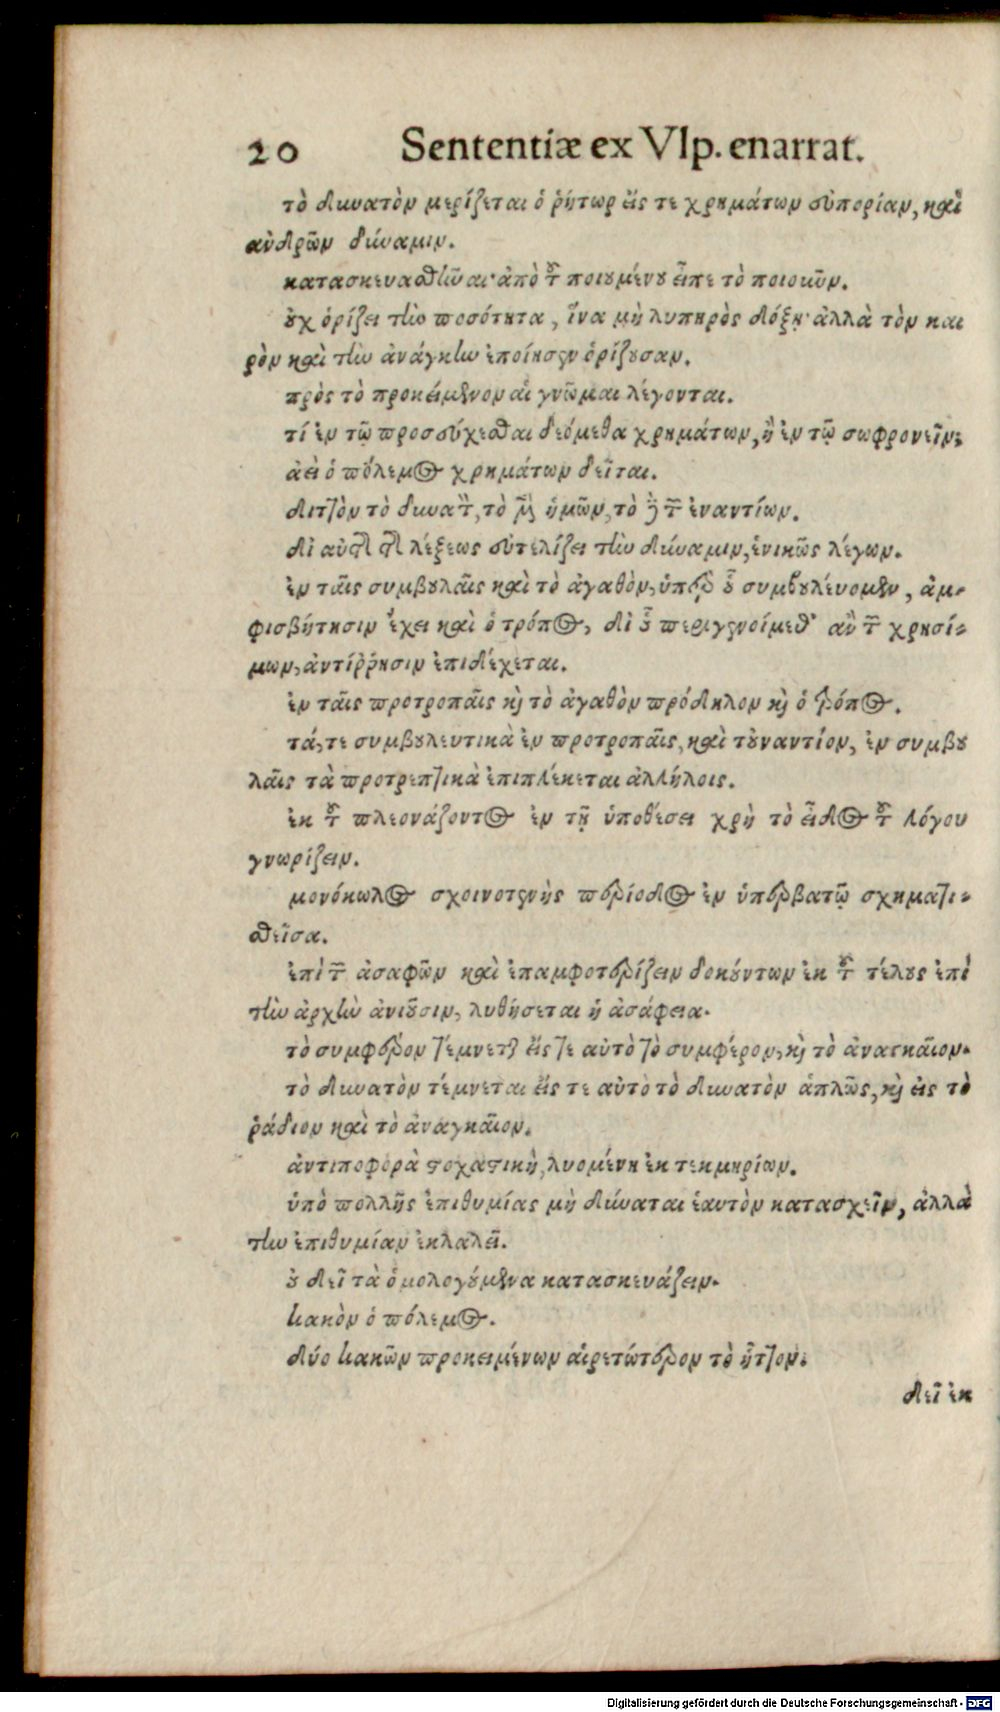 20 Sententiæ ex Vlp. enarrat.
τὸ δυνατὸν μερίζεται ὁ ῥήτωρ εἴς τε χρημάτων εὐπορίαν, καὶ
ἀνδρῶν δύναμιν.
κατασκευασθῆναι· ἀπὸ τοῦ ποιουμένου εἶπε τὸ ποιοῦν.
οὐχ ὁρίζει τὴν ποσότητα, ἵνα μὴ λυπηρὸς δόξῃ· ἀλλὰ τὸν και
ρὸν καὶ τὴν ἀνάγκην ἐποίησεν ὁρίζουσαν.
πρὸς τὸ προκείμενον αἱ γνῶμαι λέγονται.
τί ἐν τῷ προσεύχεσθαι δεόμεθα χρημάτων, ἢ ἐν τῷ σωφρονεῖν;
ἀεὶ ὁ πόλεμος χρημάτων δεῖται.
διττὸν τὸ δυνατὸν, τὸ μὲν ἡμῶν, τὸ δὲ τῶν ἐναντίων.
δι αὐτῆς τῆς λέξεως εὐτελίζει τὴν δύναμιν, ἑνικῶς λέγων.
ἐν ταῖς συμβουλαῖς καὶ τὸ ἀγαθὸν, ὑπὲρ οὗ συμβουλεύομεν, ἀμ-
φισβήτησιν ἔχει καὶ ὁ τρόπος, δι οὗ περιγενοίμεθ' ἂν τῶν χρησί-
μων, ἀντίῤῥησιν ἐπιδέχεται.
ἐν ταῖς προτροπαῖς καὶ τὸ ἀγαθὸν πρόδηλον καὶ ὁ τρόπος.
τά, τε συμβουλευτικὰ ἐν προτροπαῖς, καὶ τοὐναντίον, ἐν συμβου
λαῖς τὰ προτρεπτικὰ ἐπιπλέκεται ἀλλήλοις.
ἐκ τοῦ πλεονάζοντος ἐν τῇ ὑποθέσει χρὴ τὸ εἶδος τοῦ λόγου
γνωρίζειν.
μονόκωλος σχοινοτενὴς περίοδος ἐν ὑπερβατῷ σχηματι-
σθεῖσα.
ἐπὶ τῶν ἀσαφῶν καὶ ἐπαμφοτερίζειν δοκούντων ἐκ τοῦ τέλους ἐπὶ
τὴν ἀρχὴν ἀνιοῦσιν, λυθήσεται ἡ ἀσάφεια.
τὸ συμφέρον τέμνεται εἴς τε αὐτὸ τὸ συμφέρον, καὶ τὸ ἀναγκαῖον.
τὸ δυνατὸν τέμνεται εἴς τε αὐτὸ τὸ δυνατὸν ἁπλῶς, καὶ εἰς τὸ
ῥάδιον καὶ τὸ ἀναγκαῖον.
ἀντιποφορὰ στοχαστικὴ, λυομένη ἐκ τεκμηρίων.
ὑπὸ πολλῆς ἐπιθυμίας μὴ δύναται ἑαυτὸν κατασχεῖν, ἀλλὰ
τὴν ἐπιθυμίαν ἐκλαλεῖ.
οὐ δεῖ τὰ ὁμολογούμενα κατασκευάζειν.
κακὸν ὁ πόλεμος.
δύο κακῶν προκειμένων αἱρετώτερον τὸ ἧττον.
δεῖ ἐκ
Digitalisierung gefördert durch die Deutsche Forschungsgemeinschaft - DFG